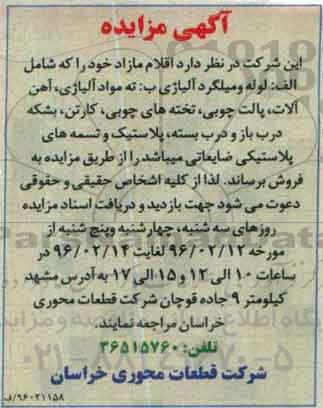 آگهی مزایده
این شرکت در نظر دارد اقلام مازاد خود را که شامل
الف: لوله و میلگرد آلیاژی ب: ته مواد آلیاژی، آهن
آلات، پالت چوبی، تخته های چوبی، کارتن، بشکه
درب باز و درب بسته، پلاستیک و تسمه های
پلاستیکی ضایعاتی میباشد را از طریق مزایده به
فروش برساند. لذا از کلیه اشخاص حقیقی و حقوقی
دعوت می شود جهت بازدید و دریافت اسناد مزایده
روزهای سه شنبه، چهارشنبه وپنج شنبه از
مورخه ۹۶/۰۲/۱۲ لغایت ۹۶/۰۲/۱۴ در
ساعات ۱۰ الی ۱۲ و ۱۵ الی ۱۷ به آدرس مشهد
کیلومتر ۹ جاده قوچان شرکت قطعات محوری
خراسان مراجعه نمایند.
تلفن: ۳۶۵۱۵۷۶۰
شرکت قطعات محوری خراسان
۹۶۰۲۱۱۵۸/ف